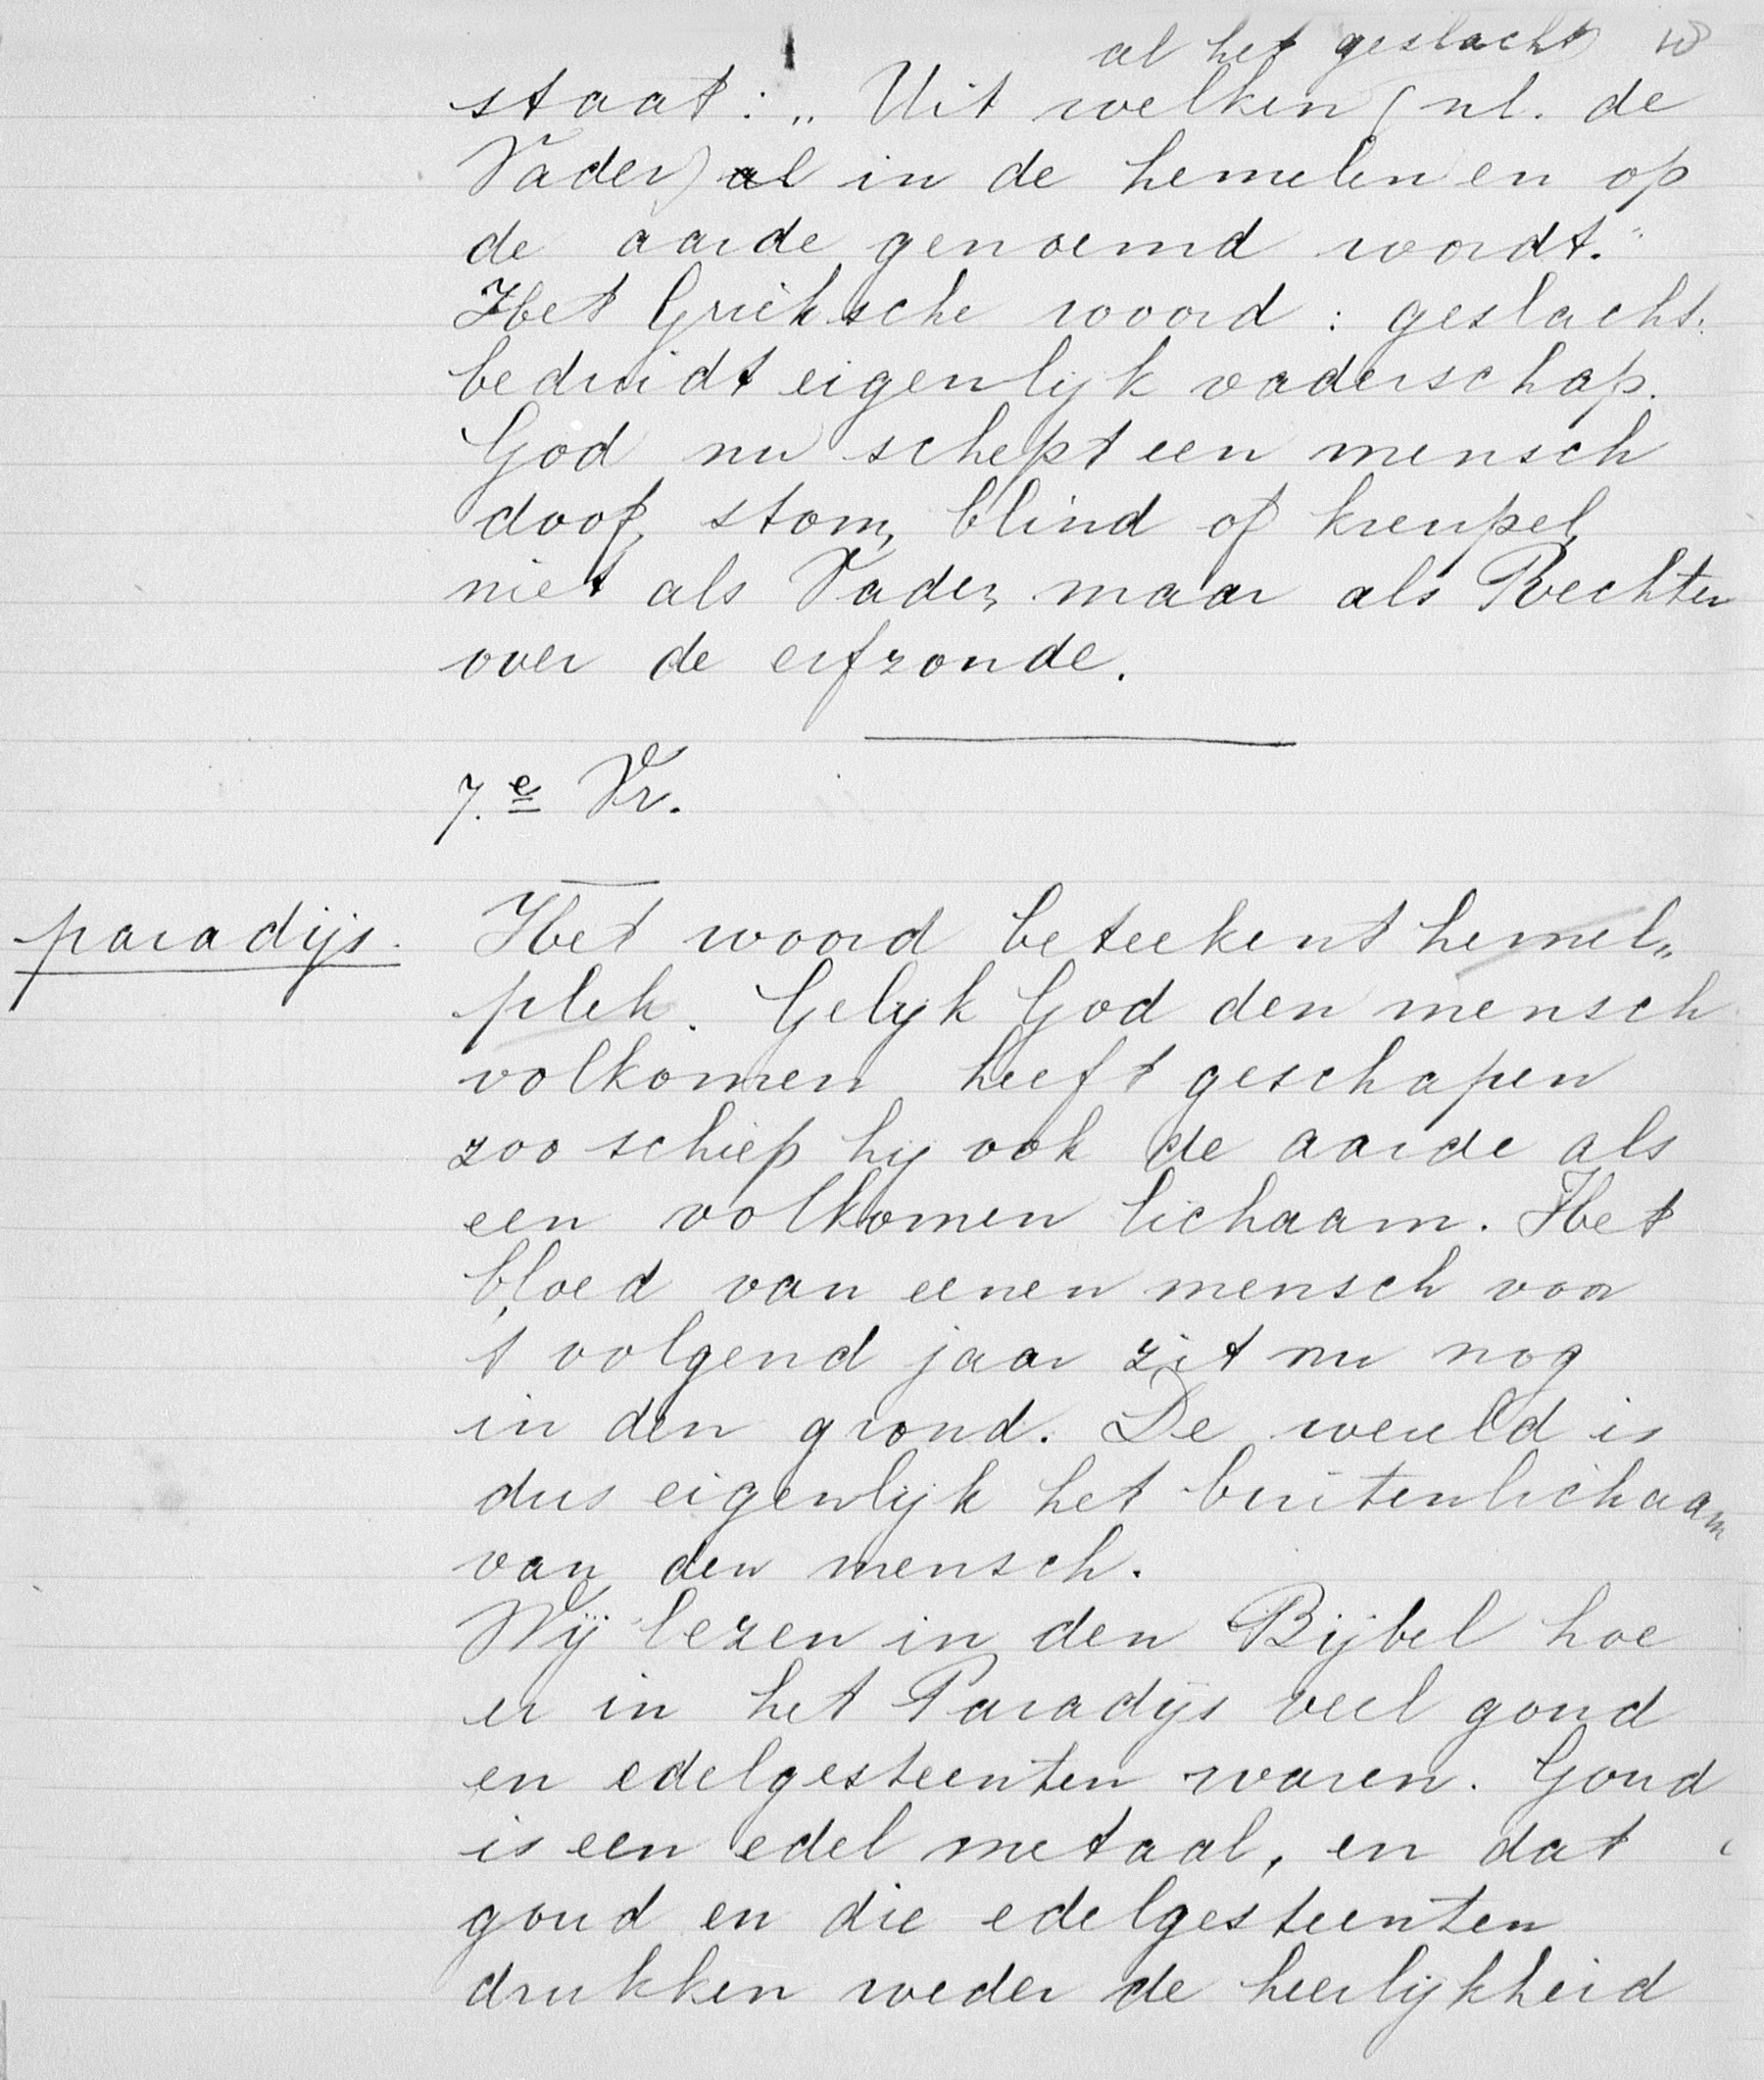 al het geslacht
staat: „Uit welken (nl. de
Vader) al in de hemelen en op
de aarde genoemd wordt."
Het Grieksche woord: geslacht.
beduidt eigenlijk vaderschap.
God nu schept een mensch
doof, stom, blind of kreupel,
niet als Vader, maar als Rechter
over de erfzonde.
7.e Vr.
paradijs.
Het woord beteekent hemel„
plek. Gelijk God den mensch
volkomen heeft geschapen
zoo schiep hij ook de aarde als
een volkomen lichaam. Het
bloed van eenen mensch voor
't volgend jaar zit nu nog
in den grond. De wereld is
dus eigenlijk het buitenlichaam
van den mensch.
Wij lezen in den Bijbel hoe
er in het Paradijs veel goud
en edelgesteenten waren. Goud
is een edel metaal, en dat
goud en die edelgesteenten
drukken weder de heerlijkheid